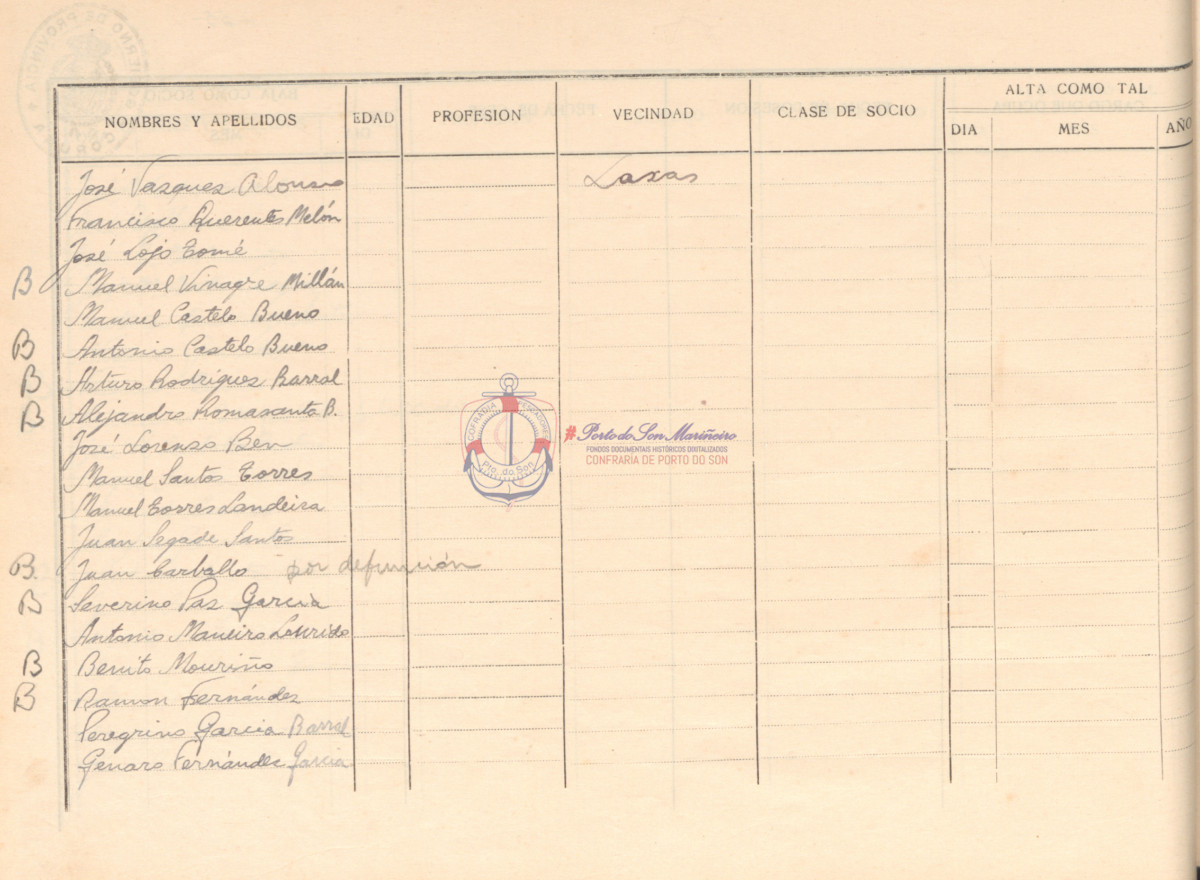 NOMBRES Y APELLIDOS EDAD PROFESION VECINDAD CLASE DE SOCIO ALTA COMO TAL
DIA MES AÑO
José Vazquez Alonso Laxas
Francisco Querentes Melón
José Lojo Tomé
B Manuel Vinagre Millán
Manuel Castelo Bueno
B Antonio Castelo Bueno
B Arturo Rodríguez Barral
B Alejandro Romasanta B.
José Lorenzo Ben
Manuel Santos Torres
Manuel Torres Landeira
Juan Segade Santos
B. Juan Carballo por defunción
B Severino Paz García
Antonio Maneiro Lourido
B Benito Mouriño
B Ramon Fernández
Peregrino Garcia Barral
Genaro Fernández Garcia
COFRADIA PESCADORES
Pto. do Son
#Porto do Son Mariñeiro
FONDOS DOCUMENTAIS HISTÓRICOS DIXITALIZADOS
CONFRARÍA DE PORTO DO SON